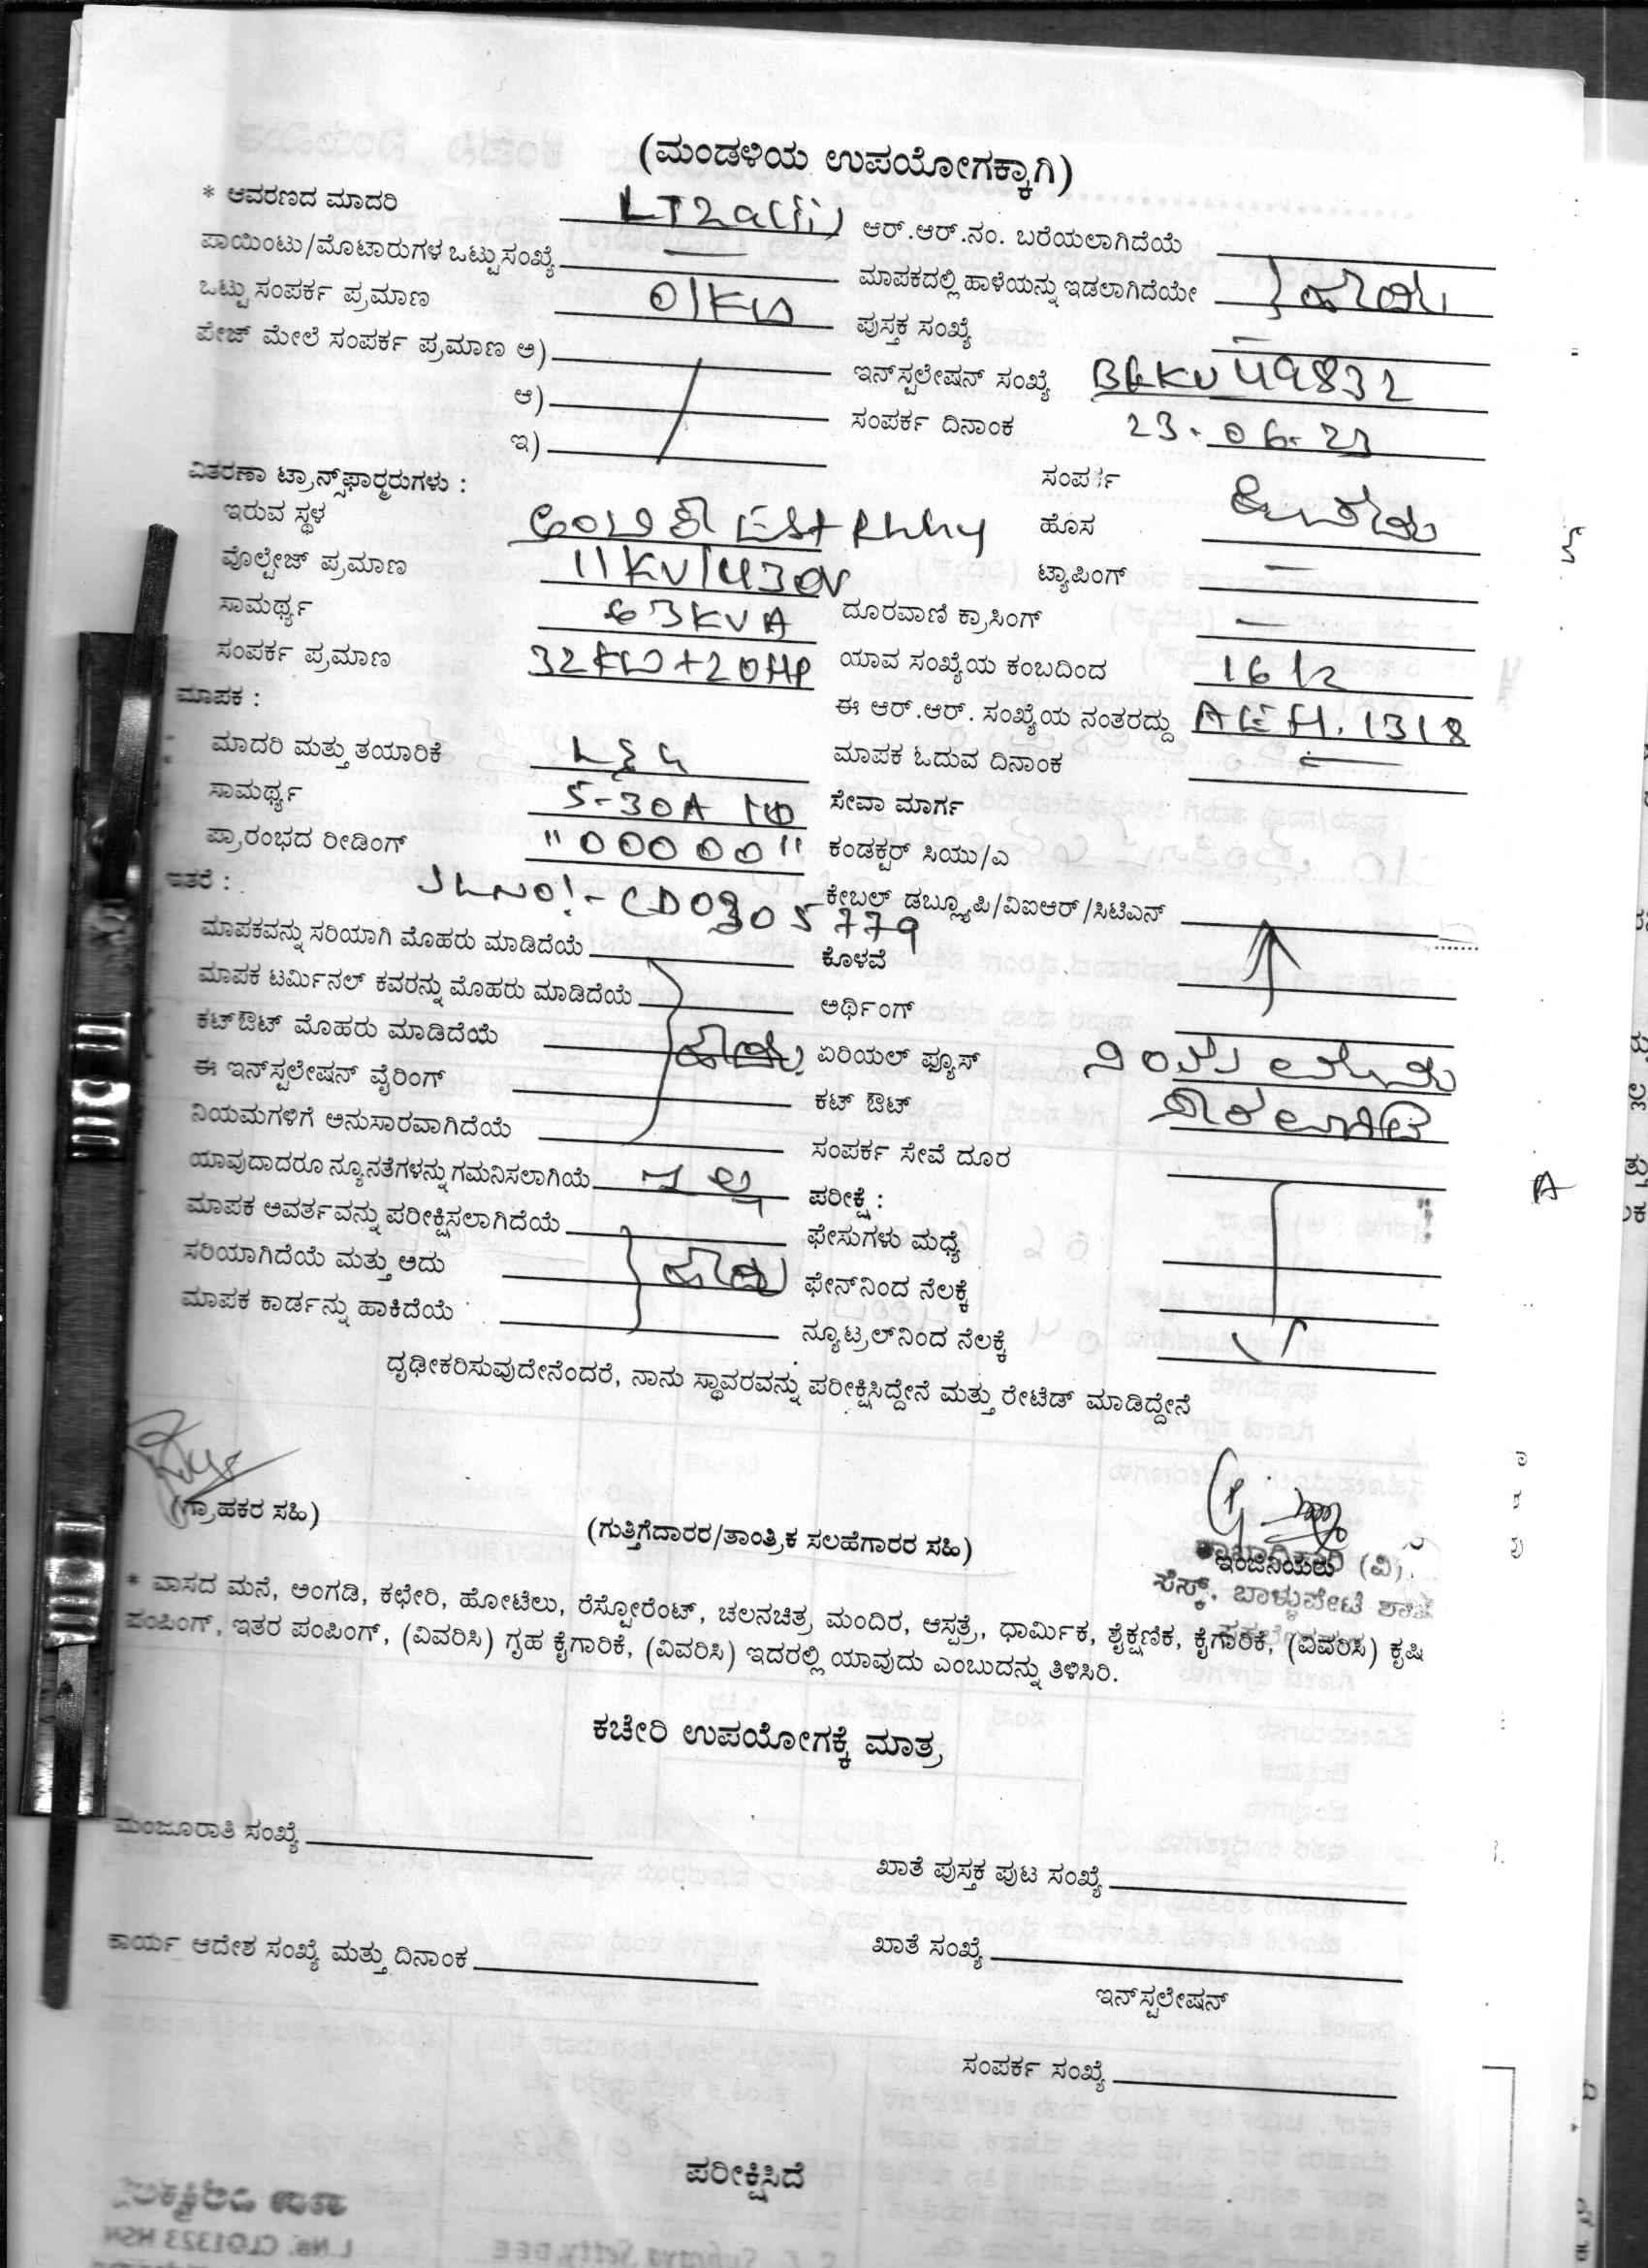 (ಮಂಡಳಿಯ ಉಪಯೋಗಕ್ಕಾಗಿ)
* ಆವರಣದ ಮಾದರಿ LT2a(ii) ಆರ್.ಆರ್.ನಂ. ಬರೆಯಲಾಗಿದೆಯೆ
ಪಾಯಿಂಟು/ಮೊಟಾರುಗಳ ಒಟ್ಟು ಸಂಖ್ಯೆ — ಮಾಪಕದಲ್ಲಿ ಹಾಳೆಯನ್ನು ಇಡಲಾಗಿದೆಯೇ ಹೌದು
ಒಟ್ಟು ಸಂಪರ್ಕ ಪ್ರಮಾಣ 01KW ಪುಸ್ತಕ ಸಂಖ್ಯೆ —
ಪೇಜ್ ಮೇಲೆ ಸಂಪರ್ಕ ಪ್ರಮಾಣ ಅ) ಇನ್‌ಸ್ಟಲೇಷನ್ ಸಂಖ್ಯೆ BGKV 49832
ಆ) ಸಂಪರ್ಕ ದಿನಾಂಕ 23.06.23
ಇ)
ವಿತರಣಾ ಟ್ರಾನ್ಸ್‌ಫಾರ್‍ಮರುಗಳು : ಸಂಪರ್ಕ
ಇರುವ ಸ್ಥಳ ಹೊಸ
ವೊಲ್ಟೇಜ್ ಪ್ರಮಾಣ 11KV/430V ಟ್ಯಾಪಿಂಗ್ —
ಸಾಮರ್ಥ್ಯ 63KVA ದೂರವಾಣಿ ಕ್ರಾಸಿಂಗ್ —
ಸಂಪರ್ಕ ಪ್ರಮಾಣ 32KW+20HP ಯಾವ ಸಂಖ್ಯೆಯ ಕಂಬದಿಂದ
ಮಾಪಕ : ಈ ಆರ್.ಆರ್. ಸಂಖ್ಯೆಯ ನಂತರದ್ದು AEH.1318
ಮಾದರಿ ಮತ್ತು ತಯಾರಿಕೆ L&G ಮಾಪಕ ಓದುವ ದಿನಾಂಕ —
ಸಾಮರ್ಥ್ಯ 5-30A 1Φ ಸೇವಾ ಮಾರ್ಗ
ಪ್ರಾರಂಭದ ರೀಡಿಂಗ್ "00000" ಕಂಡಕ್ಟರ್ ಸಿಯು/ಎ
ಇತರೆ : SLNO:- CD0305779 ಕೇಬಲ್ ಡಬ್ಲ್ಯೂಪಿ/ವಿಐಆರ್/ಸಿಟಿಎನ್
ಮಾಪಕವನ್ನು ಸರಿಯಾಗಿ ಮೊಹರು ಮಾಡಿದೆಯೆ ಕೊಳವೆ
ಮಾಪಕ ಟರ್ಮಿನಲ್ ಕವರನ್ನು ಮೊಹರು ಮಾಡಿದೆಯೆ ಅರ್ಥಿಂಗ್
ಕಟ್‌ಔಟ್ ಮೊಹರು ಮಾಡಿದೆಯೆ ಹೌದು ಏರಿಯಲ್ ಫ್ಯೂಸ್
ಈ ಇನ್‌ಸ್ಟಲೇಷನ್ ವೈರಿಂಗ್ ಕಟ್ ಔಟ್
ನಿಯಮಗಳಿಗೆ ಅನುಸಾರವಾಗಿದೆಯೆ ಸಂಪರ್ಕ ಸೇವೆ ದೂರ
ಯಾವುದಾದರೂ ನ್ಯೂನತೆಗಳನ್ನು ಗಮನಿಸಲಾಗಿಯೆ ಇಲ್ಲ ಪರೀಕ್ಷೆ :
ಮಾಪಕ ಅವರ್ತವನ್ನು ಪರೀಕ್ಷಿಸಲಾಗಿದೆಯೆ ಫೇಸುಗಳು ಮಧ್ಯೆ
ಸರಿಯಾಗಿದೆಯೆ ಮತ್ತು ಅದು ಹೌದು ಫೇನ್‌ನಿಂದ ನೆಲಕ್ಕೆ
ಮಾಪಕ ಕಾರ್ಡನ್ನು ಹಾಕಿದೆಯೆ ನ್ಯೂಟ್ರಲ್‌ನಿಂದ ನೆಲಕ್ಕೆ
ದೃಢೀಕರಿಸುವುದೇನೆಂದರೆ, ನಾನು ಸ್ಥಾವರವನ್ನು ಪರೀಕ್ಷಿಸಿದ್ದೇನೆ ಮತ್ತು ರೇಟೆಡ್ ಮಾಡಿದ್ದೇನೆ
(ಗ್ರಾಹಕರ ಸಹಿ) (ಗುತ್ತಿಗೆದಾರರ/ತಾಂತ್ರಿಕ ಸಲಹೆಗಾರರ ಸಹಿ) ಇಂಜಿನಿಯರು
ಶಾಖಾಧಿಕಾರಿ (ವಿ).
ಸೆಸ್ಕ್, ಬಾಳ್ಳುಪೇಟೆ ಶಾಖೆ
* ವಾಸದ ಮನೆ, ಅಂಗಡಿ, ಕಛೇರಿ, ಹೋಟೆಲು, ರೆಸ್ಟೋರೆಂಟ್, ಚಲನಚಿತ್ರ ಮಂದಿರ, ಆಸ್ಪತ್ರೆ, ಧಾರ್ಮಿಕ, ಶೈಕ್ಷಣಿಕ, ಕೈಗಾರಿಕೆ, (ವಿವರಿಸಿ) ಕೃಷಿ
ಪಂಪಿಂಗ್, ಇತರ ಪಂಪಿಂಗ್, (ವಿವರಿಸಿ) ಗೃಹ ಕೈಗಾರಿಕೆ, (ವಿವರಿಸಿ) ಇದರಲ್ಲಿ ಯಾವುದು ಎಂಬುದನ್ನು ತಿಳಿಸಿರಿ.
ಕಚೇರಿ ಉಪಯೋಗಕ್ಕೆ ಮಾತ್ರ
ಮಂಜೂರಾತಿ ಸಂಖ್ಯೆ ಖಾತೆ ಪುಸ್ತಕ ಪುಟ ಸಂಖ್ಯೆ
ಕಾರ್ಯ ಆದೇಶ ಸಂಖ್ಯೆ ಮತ್ತು ದಿನಾಂಕ ಖಾತೆ ಸಂಖ್ಯೆ
ಇನ್‌ಸ್ಟಲೇಷನ್
ಸಂಪರ್ಕ ಸಂಖ್ಯೆ
ಪರೀಕ್ಷಿಸಿದೆ